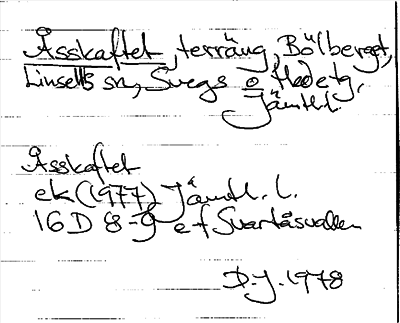 Åsskaftet, terräng, Bölberget,
Linsells sn, Svegs o Hede tg,
Jämtl.l.
Åsskaftet
ek (1977) Jämtl. l.
16D 8-9 e-f Svartåsvallen
D.J. 1978